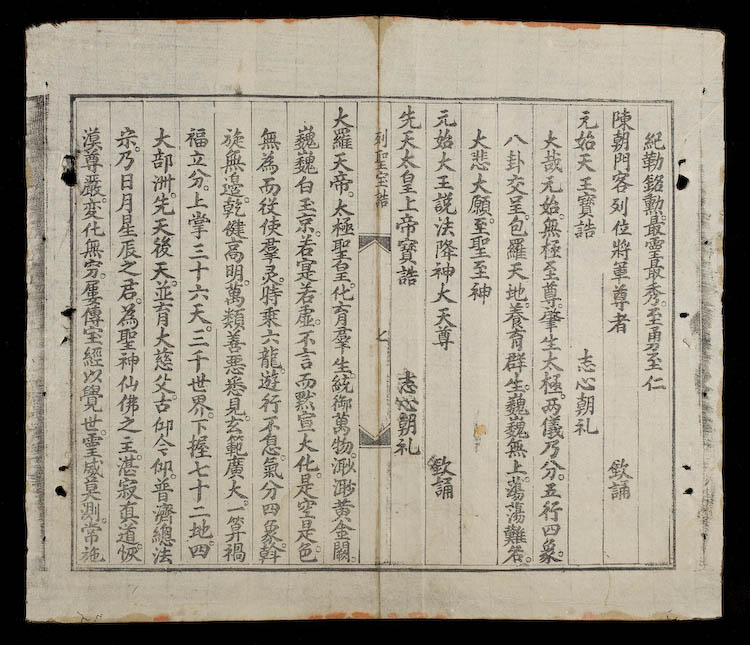 紀勒銘勲最霊最秀。至勇至仁
陳朝門客列位將軍尊者 致誦
元始天王寶誥 志心朝礼
大哉元始。無極至尊。肇生太極。两儀乃分。五行四象。
八卦交呈。包羅天地。養育群生。巍巍無上。蕩蕩難名。
大悲大願。至聖至神
元始大王説法降神大天尊 致誦
先天太皇上帝寶誥 志心朝礼
列聖宝誥 七
大羅天帝。太極聖皇。化育羣生。統御萬物。渺渺黃金闕。
巍巍白玉京。若寔若虛。不言而默宣大化。是空是色
無為而役使羣灵。時乘六龍。遊行不息。氣分四象。斡
旋無邉。乾健高明。萬類善惡悉見。玄範廣大。一算禍
福立分。上掌三十六天。三千世界。下握七十二地。四
大部洲。先天後天。並育大慈父。古仰今仰。普濟總法
宗。乃日月星辰之君。為聖神仙佛之主。湛寂真道。恢
漠尊嚴。変化無穷。屡傳宝經以覺世。霊威莫測。常施